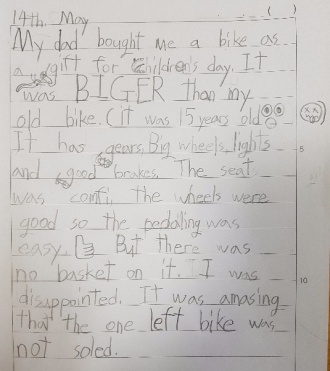 14th. May ( )
My dad bought me a bike as
a gift for Children's day. It
was BIGER than my
old bike. (it was 15 years old
It has gears, Big wheels, lights
5
and good brakes. The seat
was comfi, the wheels were
good so the pedaling was
easy. But there was
no basket on it. I was
10
disappointed. It was amasing
that the one left bike was
not soled.